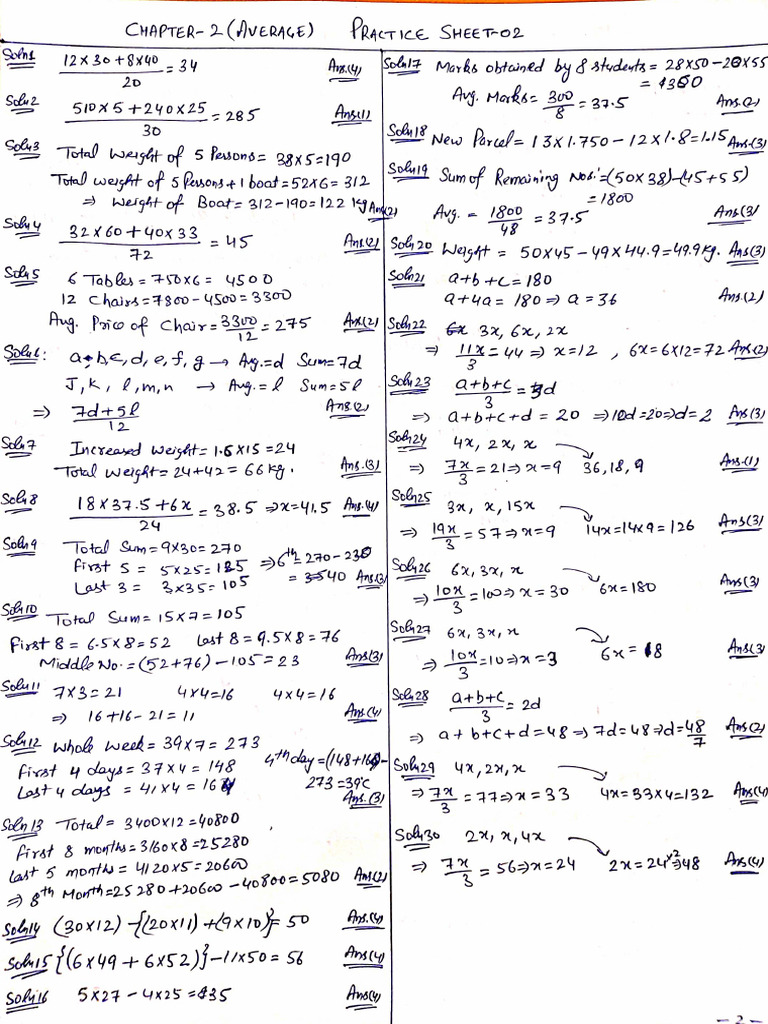 CHAPTER-2 (AVERAGE) PRACTICE SHEET-02
Soln1 12×30+8×40 / 20 = 34 Ans.(4)
Soln2 510×5+240×25 / 30 = 285 Ans(1)
Soln3 Total weight of 5 Persons = 38×5=190
Total weight of 5 Persons+1 boat=52×6=312
⇒ weight of Boat=312-190=122 kg Ans(2)
Soln4 32×60+40×33 / 72 = 45 Ans(2)
Soln5 6 Tables=750×6= 4500
12 Chairs=7800-4500=3300
Avg. Price of Chair=3300/12=275 Ans(2)
Soln6: a,b,c,d,e,f,g → Avg.=d Sum=7d
J,k,l,m,n → Avg.=l Sum=5l
⇒ 7d+5l / 12 Ans(2)
Soln7 Increased weight=1.6×15=24
Total weight=24+42=66kg. Ans.(3)
Soln8 18×37.5+6x / 24 = 38.5 ⇒x=41.5 Ans(4)
Soln9 Total Sum=9×30=270
First 5 = 5×25=125 ⇒6th=270-230
Last 3 = 3×35=105 = 40 Ans(3)
Soln10 Total Sum=15×7=105
First 8=6.5×8=52 Last 8=9.5×8=76
Middle No.=(52+76)-105=23 Ans(3)
Soln11 7×3=21 4×4=16 4×4=16
⇒ 16+16-21=11 Ans(4)
Soln12 Whole week=39×7=273
First 4 days=37×4=148 4th day=(148+164)-
Last 4 days =41×4=164 273=39°c
Ans.(3)
Soln13 Total=3400×12=40800
First 8 months=3160×8=25280
Last 5 months=4120×5=20600
⇒ 8th Month=25280+20600-40800=5080 Ans(2)
Soln14 (30×12)-{(20×11)+(9×10)}=50 Ans.(4)
Soln15 {(6×49+6×52)}-11×50=56 Ans(4)
Soln16 5×27-4×25=35 Ans(4)
Soln17 Marks obtained by 8 students=28×50-20×55
=300
Avg. Marks=300/8=37.5 Ans(2)
Soln18 New Parcel=13×1.750-12×1.8=1.15 Ans(3)
Soln19 Sum of Remaining Nos.=(50×38)-(45+55)
=1800
Avg.=1800/48=37.5 Ans(3)
Soln20 Weight=50×45-49×44.9=49.9kg. Ans(3)
Soln21 a+b+c=180
a+4a=180⇒a=36 Ans.(2)
Soln22 3x, 6x, 2x
⇒ 11x/3=44⇒x=12, 6x=6×12=72 Ans(2)
Soln23 a+b+c / 3 = 3d
⇒ a+b+c+d=20⇒10d=20⇒d=2 Ans(3)
Soln24 4x, 2x, x
⇒ 7x/3=21⇒x=9 36,18,9 Ans.(1)
Soln25 3x, x, 15x
⇒ 19x/3=57⇒x=9 14x=14×9=126 Ans(3)
Soln26 6x, 3x, x
⇒ 10x/3=100⇒x=30 6x=180 Ans(3)
Soln27 6x, 3x, x
⇒ 10x/3=10⇒x=3 6x=18 Ans(3
Soln28 a+b+c / 3 = 2d
⇒ a+b+c+d=48⇒7d=48⇒d=48/7 Ans(2)
Soln29 4x, 2x, x
⇒ 7x/3=77⇒x=33 4x=33×4=132 Ans(4)
Soln30 2x, x, 4x
⇒ 7x/3=56⇒x=24 2x=24×2⇒48 Ans(4)
-2-